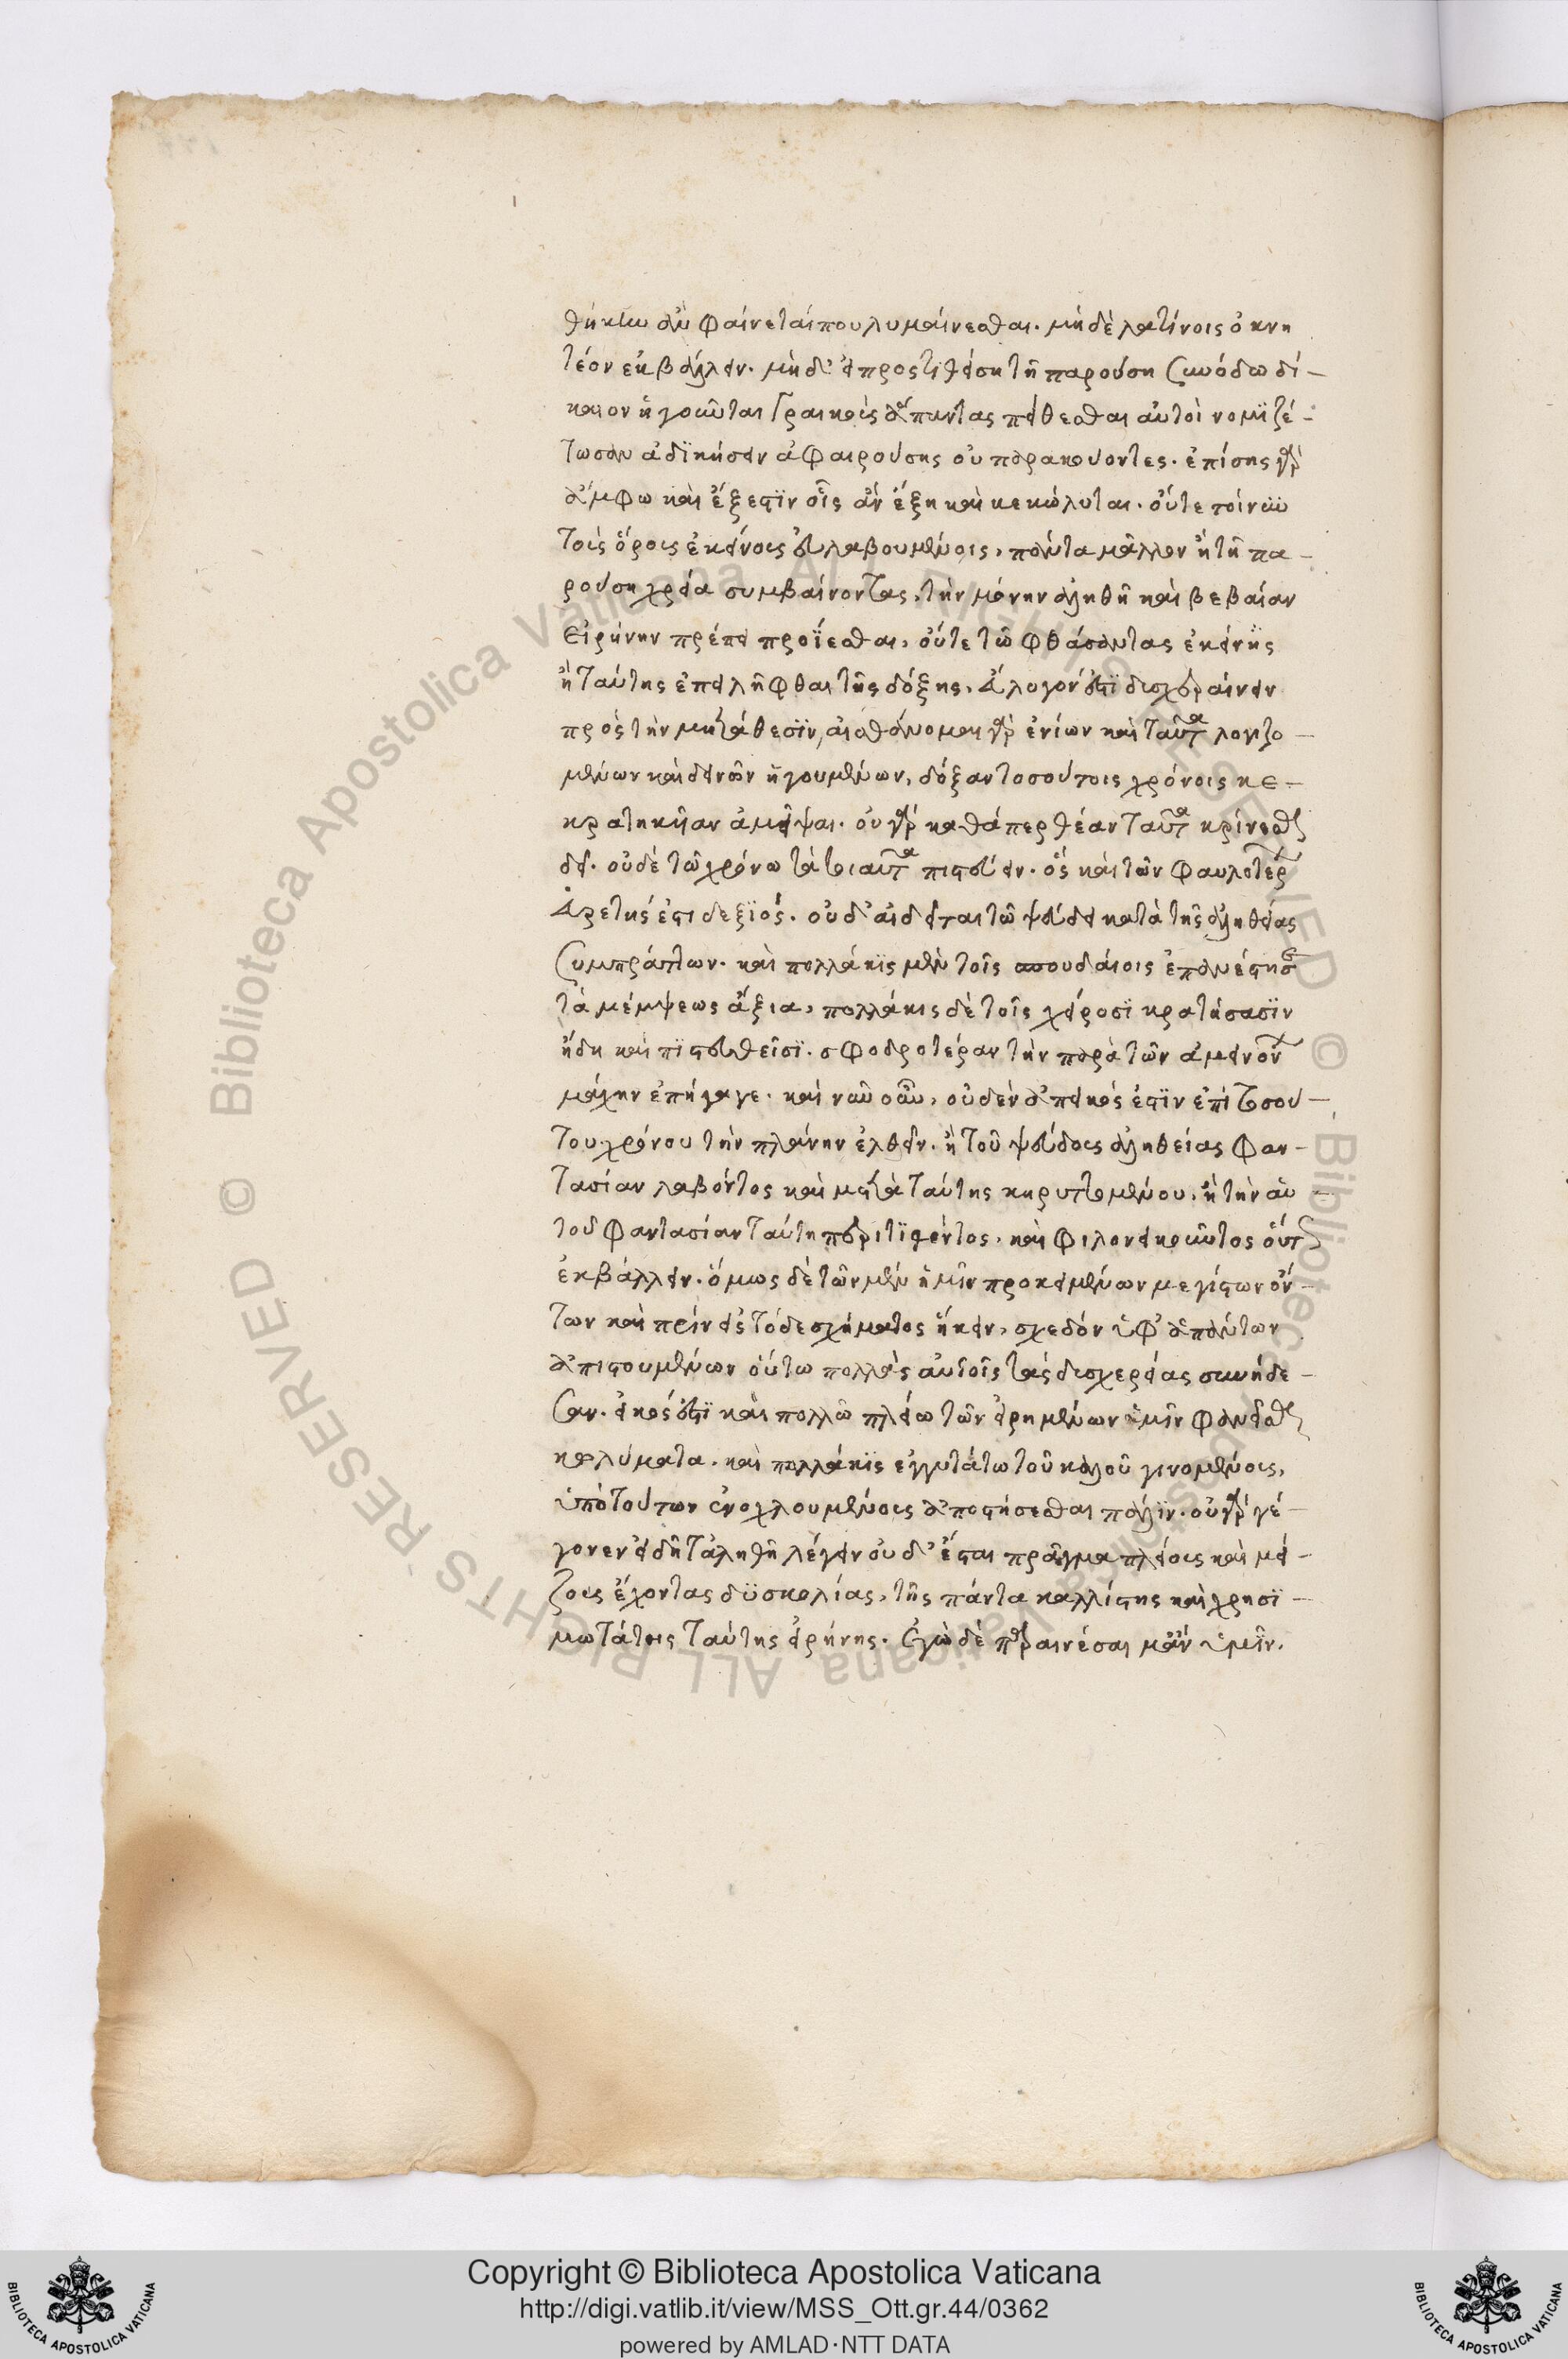 θήκην ἂν φαίνεταί που λυμαίνεσθαι. μὴ δὲ λατίνοις ὀκνη
τέον ἐκβάλλειν. μὴ δ' εἰ προςτιθείση τῆ παρούση συνόδω δί-
καιον ἡγοῦνται Γραικοὺς ἅπαντας πείθεσθαι αὐτοὶ νομιζέ-
τωσαν ἀδϊκήσειν ἀφαιρούσης οὐ παρακούοντες. ἐπίσης γὰρ
ἄμφω καὶ ἔξεστϊν οἷς ἂν ἐξῆ καὶ κεκώλυται. οὔτε τοίνυν
τοὺς ὅρους ἐκείνους εὐλαβουμένοις, πάντα μᾶλλον ἢ τῆ πα-
ρούση χρεία συμβαίνοντας, τὴν μόνην ἀληθῆ καὶ βεβαίαν
Εἰρήνην πρέπει προΐεσθαι, οὔτε τῶ φθάσαντας ἐκείνης
ἢ ταύτης ἐπειλῆφθαι τῆς δόξης, ἄλογόν ἐστϊ δυσχεραίνειν
πρὸς τὴν μετάθεσϊν, αἰσθάνομαι γὰρ ἐνίων καὶ ταῦτα λογιζο-
μένων καὶ δεινὸν ἡγουμένων, δόξαν τοσούτοις χρόνοις κε-
κρατηκυῖαν ἀμεῖψαι. οὐ γὰρ καθάπερ θέαν ταῦτα κρίνεσθαι
δεῖ. οὐδὲ τῶ χρόνω τὰ τοιαῦτα πιστεύειν. ὃς καὶ τῶν φαυλοτέρων
Ἀρετῆς ἐστι δεξϊός. οὐδ' αἰδεῖται τῶ ψεύδει κατὰ τῆς ἀληθείας
Συμπράττων. καὶ πολλάκϊς μὲν τοῖς σπουδαίοις ἐπανέστησε
τὰ μέμψεως ἄξια, πολλάκις δὲ τοῖς χείροσϊ κρατήσασϊν
ἤδη καὶ πϊστευθεῖσϊ. σφοδροτέραν τὴν παρὰ τῶν ἀμεινόνων
μάχην ἐπήγαγε. καὶ νῦν οὖν, οὐδὲν ἀπεικός ἐστϊν ἐπὶ τοσού-
του χρόνου τὴν πλάνην ἐλθεῖν. ἢ τοῦ ψεύδους ἀληθείας φαν-
τασίαν λαβόντος καὶ μετὰ ταύτης κηρυττομένου. ἢ τὴν αὐ-
τοῦ φαντασίαν ταύτη περιτϊθέντος. καὶ φιλονεικοῦντος οὕτως
ἐκβάλλειν. ὅμως δὲ τῶν μὲν ἡμῖν προκειμένων μεγίστων ὄν-
των καὶ πρὶν εἰς τόδε σχήματος ἥκειν, σχεδὸν ὑφ' ἁπάντων
ἀπιστουμένων οὕτω πολλὰς αὐτοῖς τὰς δυσχερείας συνήδε-
σαν. εἰκός ἐστϊ καὶ πολλῶ πλείω τῶν εἰρημένων ἡμῖν φανεῖσθαι
κωλύματα. καὶ πολλάκϊς ἐγγυτάτω τοῦ καλοῦ γινομένους,
ὑπὸ τούτων ἐνοχλουμένους ἀποστήσεσθαι πάλϊν. οὐ γὰρ γέ-
γονεν εἰ δεῖ τἀληθῆ λέγειν οὐδ' ἔσται πρᾶγμα πλείους καὶ μεί-
ζους ἔχοντας δϋσκολίας, τῆς πάντα καλλίστης καὶ χρησϊ-
μωτάτης ταύτης εἰρήνης. Ἐγὼ δὲ παραινέσαι μὲν ἂν ὑμῖν.
Copyright © Biblioteca Apostolica Vaticana
http://digi.vatlib.it/view/MSS_Ott.gr.44/0362
powered by AMLAD·NTT DATA